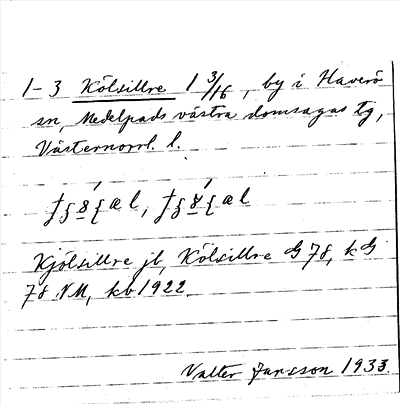 1-3 Kölsillre 1 3/16, by i Haverö
sn, Medelpads västra domsagas tg,
Västernorrl. l.
Kjölsillre jb, Kölsillre G 78, k G
78 NM, kb 1922.
Valter Jansson 1933